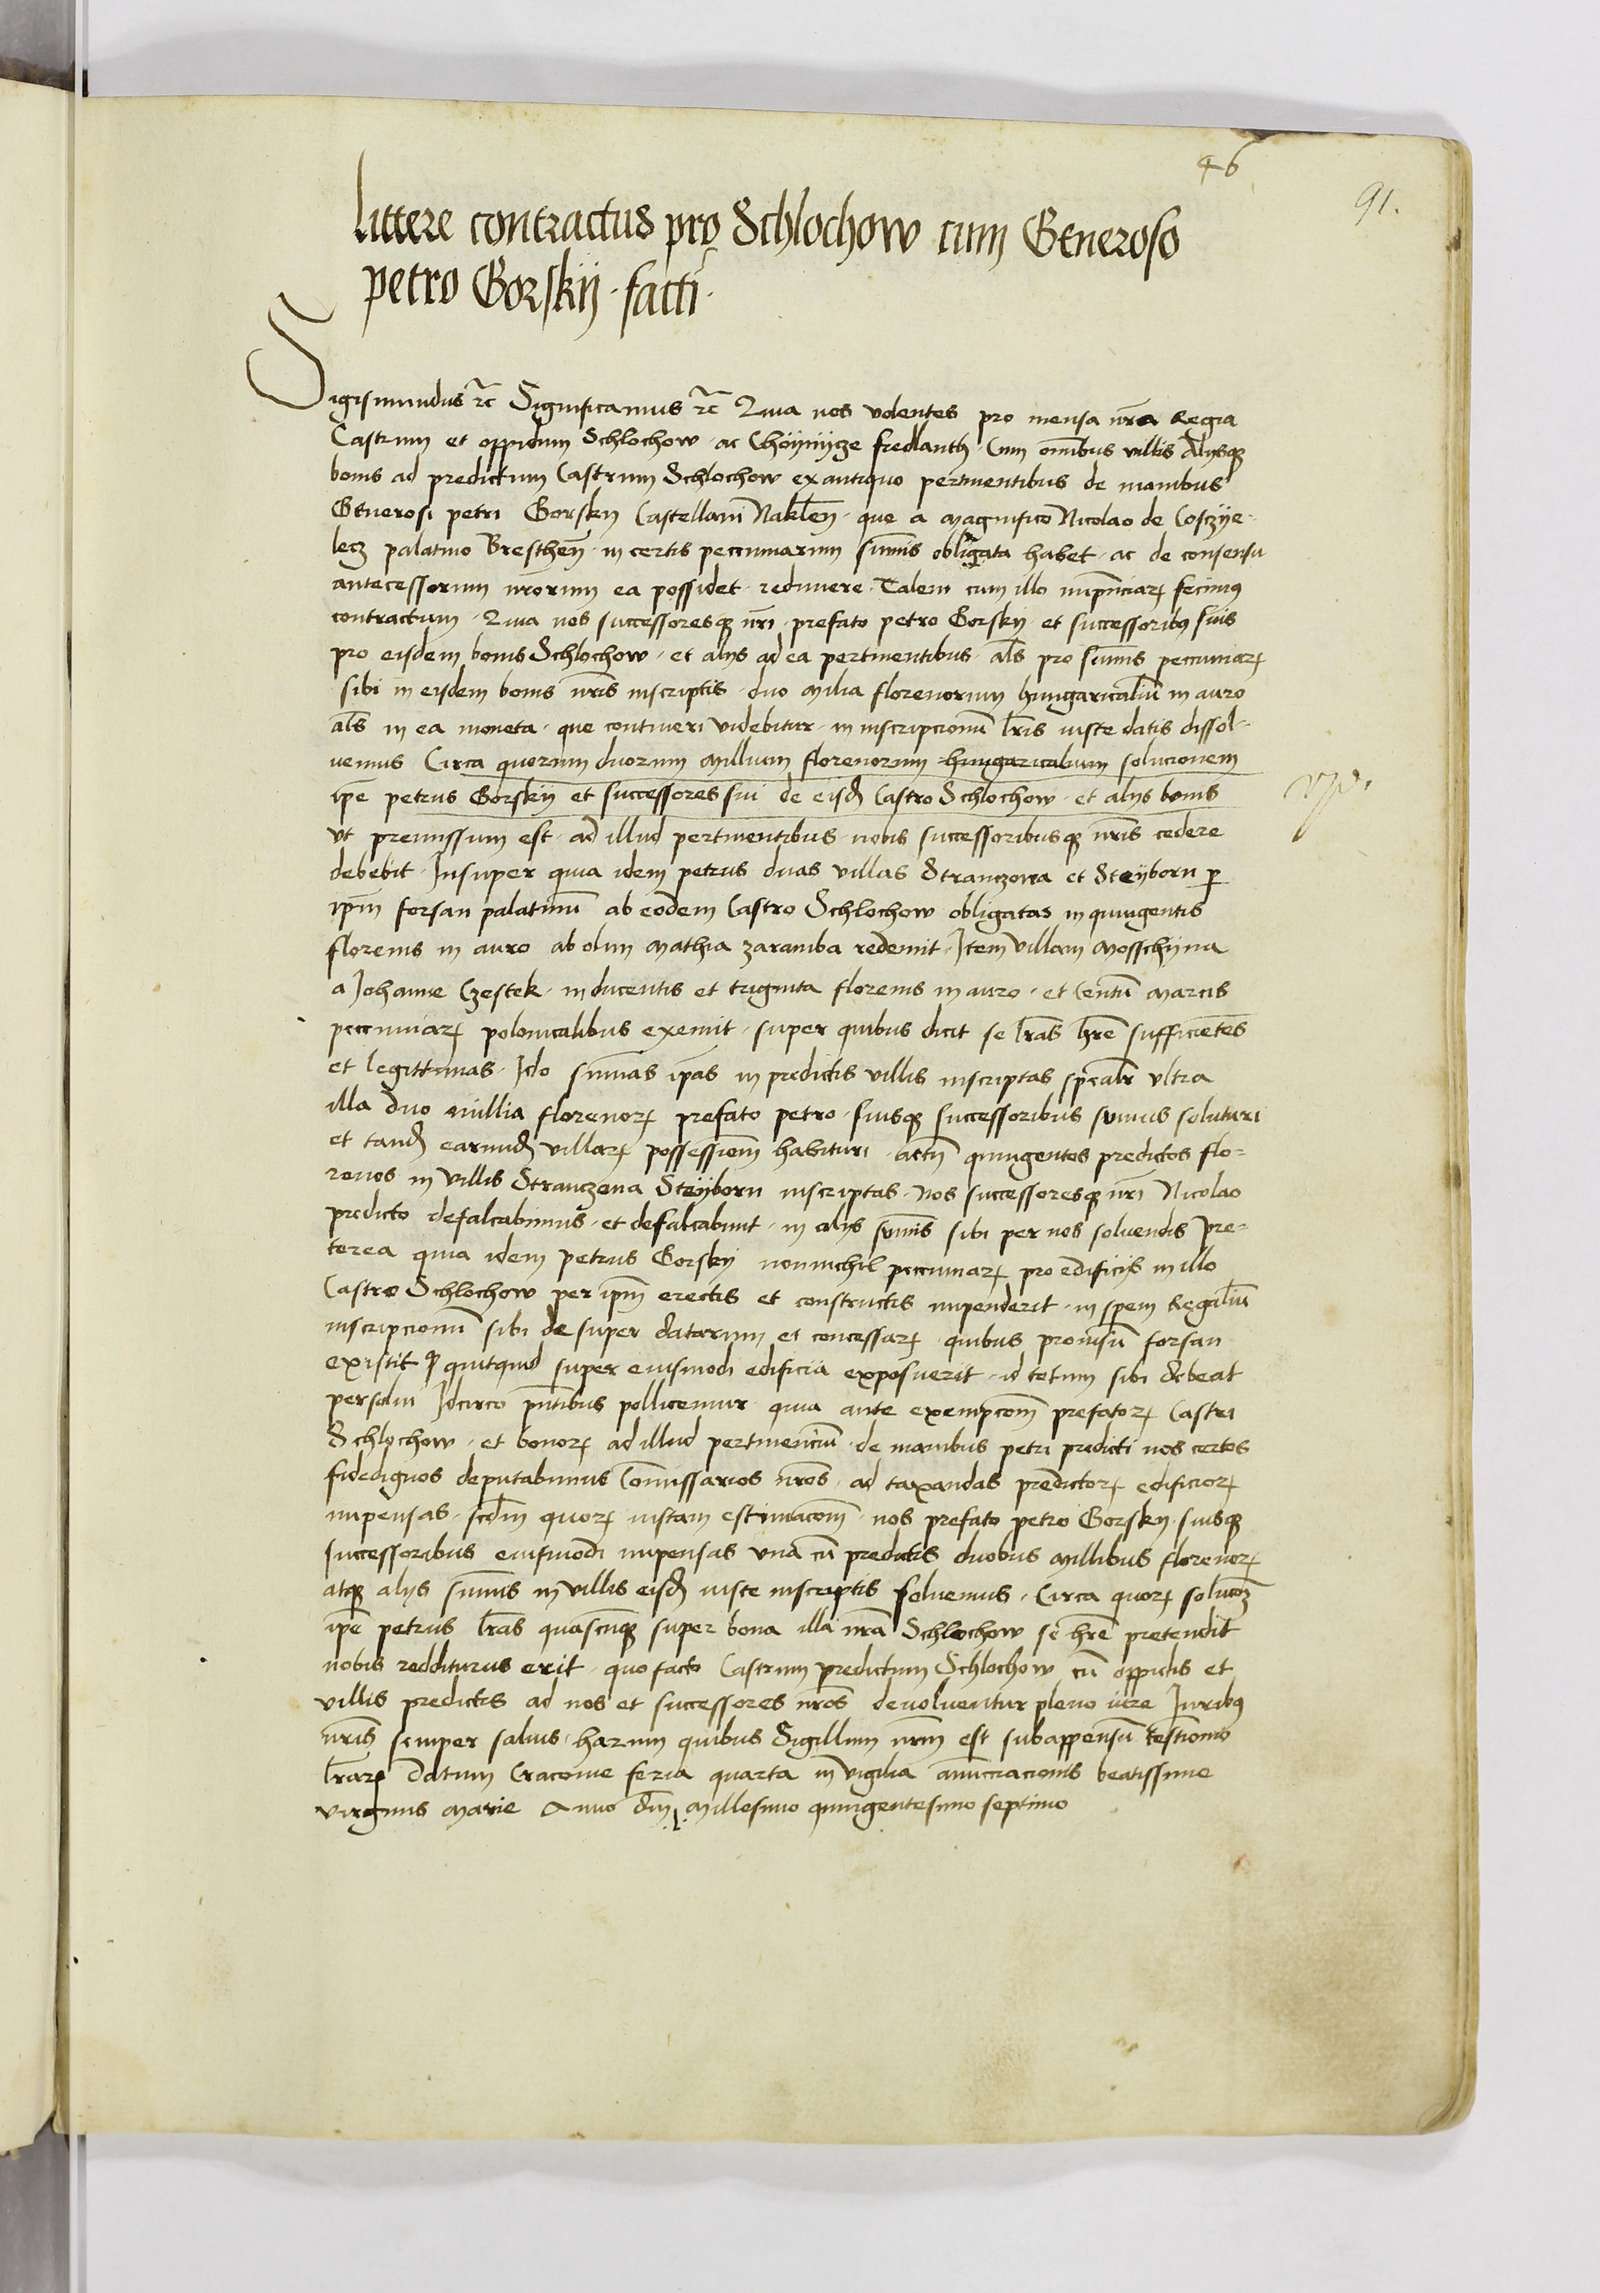 46
91.
littere contractus pro Schlochow cum Generoso
petro Gorskÿ · facti ·
Sigismundus rc̄ Significamus rc̄ Quia nos volentes pro mensa nr̄a Regia
Castrum et oppidum Schlochow · ac Choÿnÿcze fredlanth · Cum om̄ibus villis Alÿsqꝫ
bonis ad predictum Castrum Schlochow ex antiquo pertinentibus de manibus
Generosi petri Gorskÿ Castellani Nakleñ · que a magnifico Nicolao de Cosczÿe-
lecz palatino Brestheñ · in certis peccuniarum sum̄is obligata habet · ac de consensu
antecessorum nr̄orum ea possidet · redimere · Talem cum illo inpn̄ciarꝫ fecimus
contractum · Quia nos successoresqꝫ nr̄i · prefato petro Gorskÿ et successoribus suis
pro eisdem bonis Schlochow · et alÿs ad ea pertinentibus · al̄s pro sum̄is peccuniarꝫ
sibi in eisdem bonis nr̄is inscriptis · duo milia florenorum hungaricaliū in auro
al̄s in ea moneta · que contineri videbitur · in inscripcionū lr̄is iuste datis dissol-
uemus Circa quorum duorum millium florenorum hungaricalium solucionem
ip̄e petrus Gorskÿ et successores sui de eisd̄ Castro Schlochow · et alÿs bonis
vt premissum est · ad illud pertinentibus · nobis successoribusqꝫ nr̄is cedere
debebit · Insuper quia idem petrus duas villas Stranczona et Steÿborn ꝑ
ip̄m forsan palatinū ab eodem Castro Schlochow obligatas in quingentis
florenis in auro ab olim Mathia zaramba redemit · Item villam Mosschÿna
a Johanne Czestek · in ducentis et triginta florenis in auro · et Centū marcis
peccuniarꝫ polonicalibus exemit · super quibus dicit se lr̄as hr̄e sufficientes
et legittimas · Ido sum̄as ip̄as in predictis villis inscriptas sp̄ealr̄ vltra
illa duo millia florenorꝫ prefato petro · suisqꝫ successoribus sumus soluturi
et tand̄ earund̄ villarꝫ possessiom̄ habituri · attn̄ quingentos predictos flo-
renos in villis Stranczena Steÿborn inscriptas · nos successoresqꝫ nr̄i Nicolao
predicto defalcabimus · et defalcabunt · in alÿs sum̄is sibi per nos soluendis Pre-
terea quia idem petrus Gorskÿ nonnichil peccuniarꝫ pro edificÿs in illo
Castro Schlochow per ip̄m erectis et constructis inpenderit · in spem Regaliū
inscripcionū sibi de super datarum et concessarꝫ · quibus prouisū forsan
existit ꝙ quitquid super eiusmodi edificia exposuerit · id totum sibi debeat
persolui Idcirco pn̄tibus pollicemur quia ante exempcōm prefatorꝫ Castri
Schlochow · et bonorꝫ ad illud pertinenciū · de manibus petri predicti nos certos
fidedignos deputabimus Com̄issarios nr̄os · ad taxandas predictorꝫ edificiorꝫ
inpensas · scd̄m quorꝫ iustam estimacōm · nos prefato petro Gorskÿ · suisqꝫ
successoribus eiusmodi inpensas vna cū predictis duobus millibus florenorꝫ
atqꝫ alÿs sum̄is in villis eisd̄ iuste inscriptis soluemus · Circa quorꝫ solucōꝫ
ip̄e petrus lr̄as quascūqꝫ super bona illa nr̄a Schlochow se hr̄e pretendit
nobis redditurus erit · quo facto Castrum predictum Schlochow cū oppidis et
villis predictis ad nos et successores nr̄os deuoluentur pleno iure Iuribus
nr̄is semper saluis · harum quibus Sigillum nr̄m est subappensū testimo͞io
lr̄arꝫ Datum Cracouie feria quarta in vigilia annūcciacionis beatissime
virginis marie Anno dn̄i Millesimo quingentesimo septimo